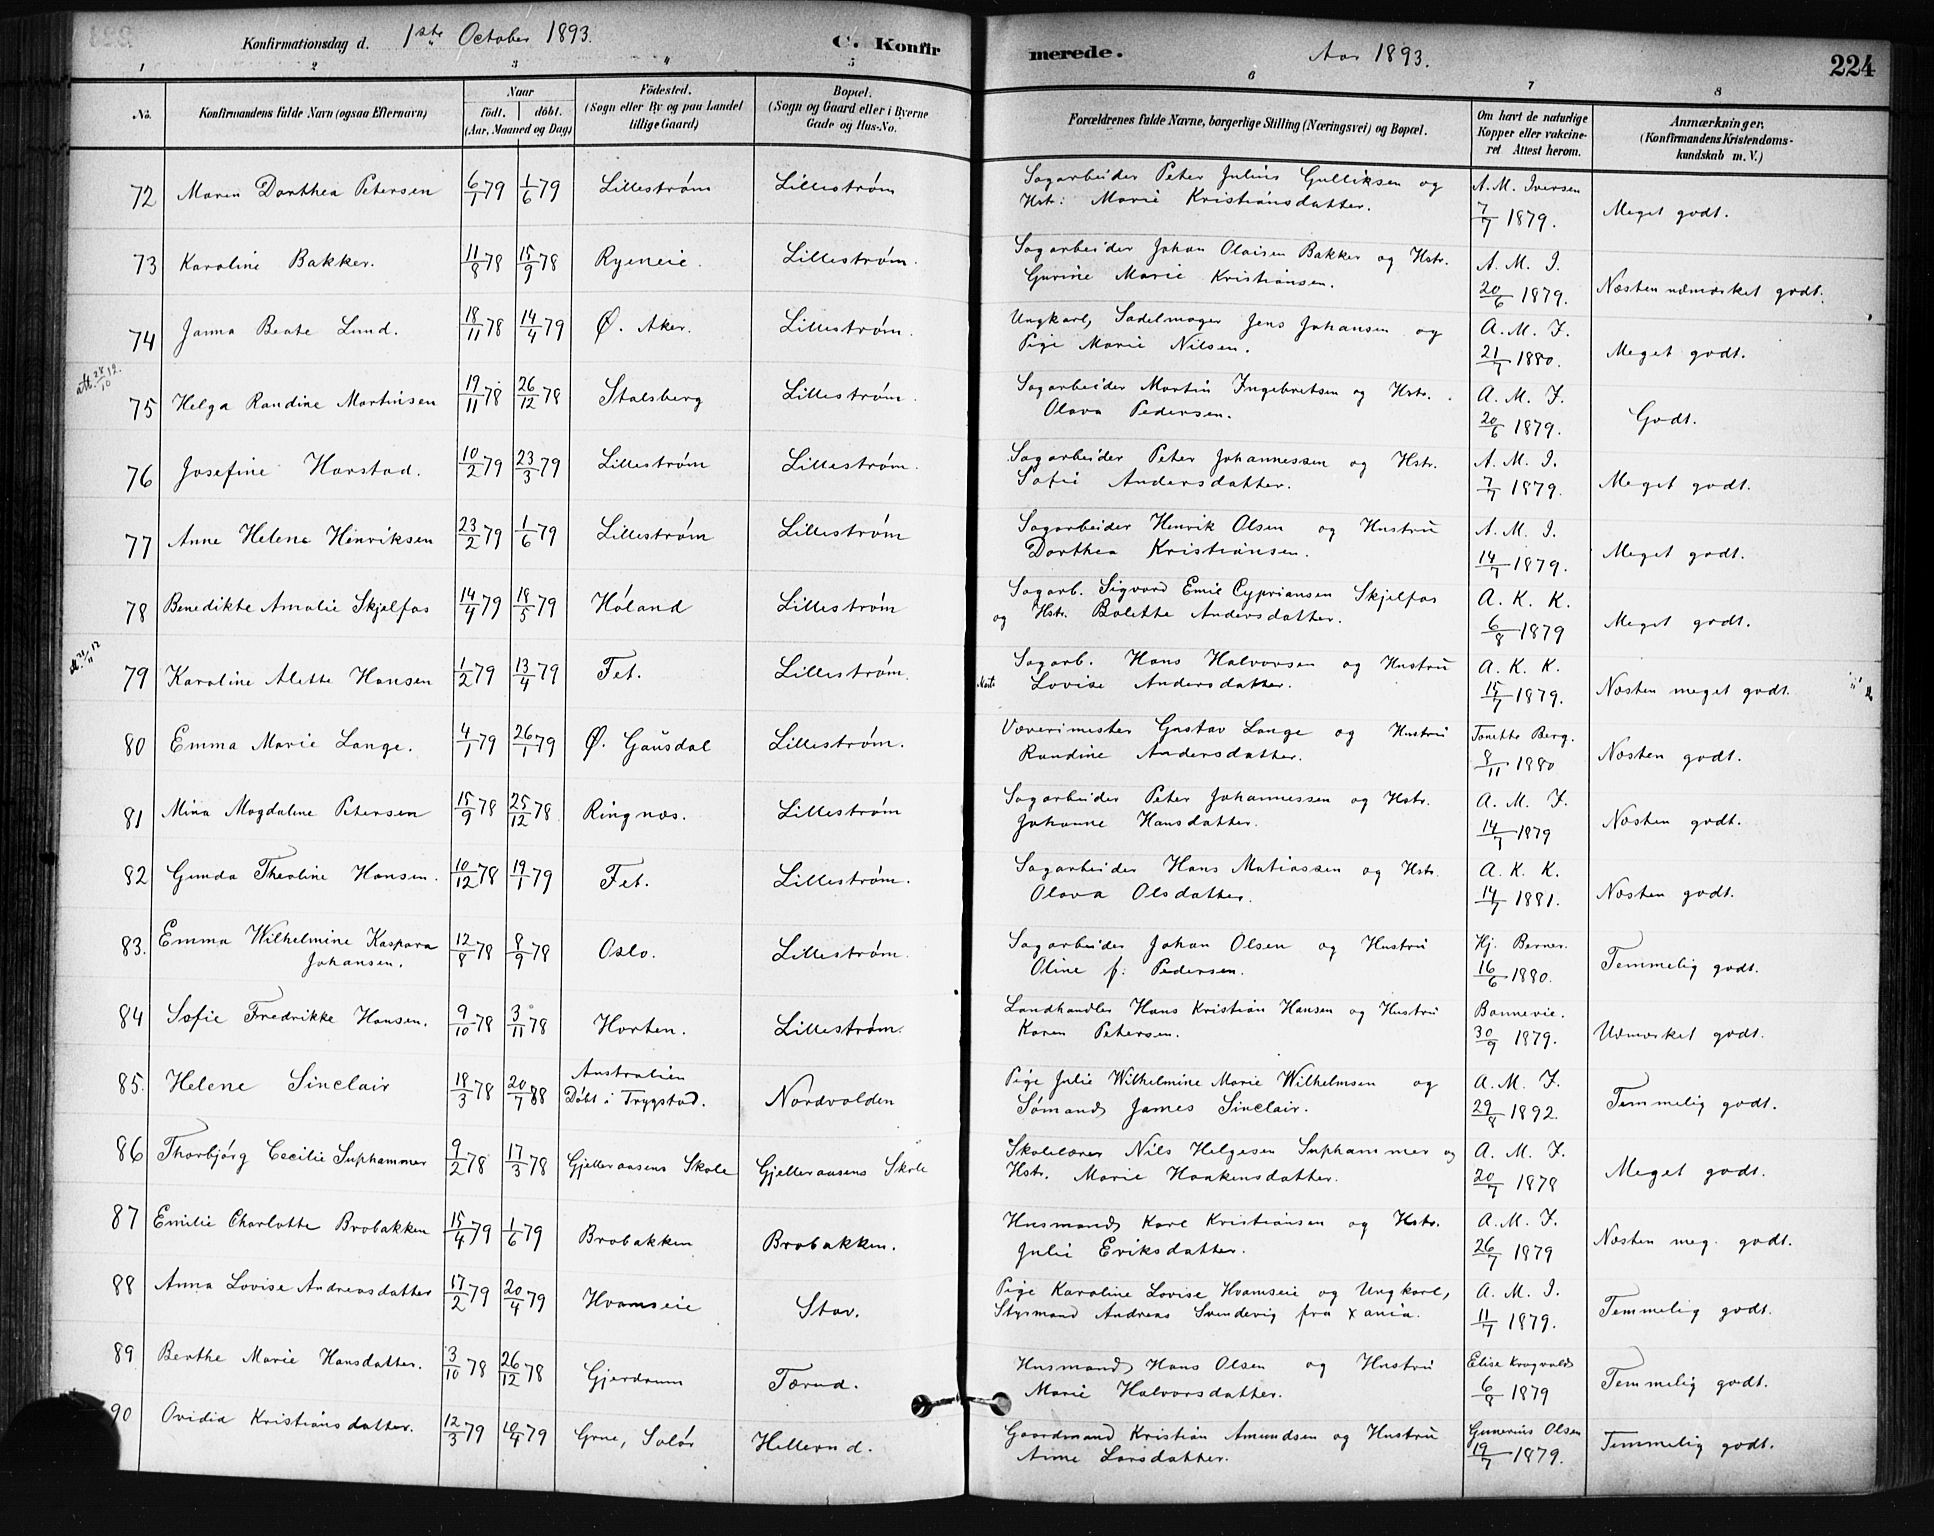 Konfirmationsdag d. 1ste October 1893. C. Konfirmerede. Aar 1893. 224
1 2 3 4 5 6 7 8
No. Konfirmandens fulde Navn (ogsaa Efternavn) Naar födt. döbt. (Aar, Maaned og Dag) Födested. (Sogn eller By og paa Landet tillige Gaard) Bopæl. (Sogn og Gaard eller i Byerne Gade og Hus-No. Forældrenes fulde Navne, borgerlige Stilling (Næringsvei) og Bopæl. Om havt de naturlige Kopper eller vakcineret Attest herom. Anmærkninger. (Konfirmandens Kristendomskundskab m. V.)
72 Maren Dorthea Petersen 6/1 79 1/6 79 Lillestrøm Lillestrøm Sagarbeider Peter Julius Gulliksen og A. M. Iversen
Hstr: Marie Kristiansdatter. 7/7 1879. Meget godt.
73 Karoline Bakker. 11/8 78 15/9 78 Ryeneie. Lillestrøm. Sagarbeider Johan Olaisen Bakker og Hstr. A. M. I.
Gurine Marie Kristiansen. 20/6 1879. Næsten udmærket godt.
74 Janna Beate Lund. 18/11 78 14/4 79 Ø. Aker. Lillestrøm. Ungkarl, Sadelmager Jens Johansen og A. M. I.
Pige Marie Nilsen. 21/7 1880. Meget godt.
att. 28/10 12.
75 Helga Randine Martinsen 19/11 78 26/12 78 Stalsberg Lillestrøm. Sagarbeider Martin Ingebretsen og Hstr. A. M. I.
Olava Pedersen. 20/6 1879. Godt.
76 Josefine Harstad. 10/2 79 23/3 79 Lillestrøm Lillestrøm. Sagarbeider Peter Johannessen og Hstr. A. M. I.
Sofie Andersdatter. 7/7 1879. Meget godt.
77 Anne Helene Henriksen 23/2 79 1/6 79 Lillestrøm Lillestrøm Sagarbeider Henrik Olsen og Hustru A. M. I.
Dorthea Kristiansen. 14/7 1879. Meget godt.
78 Benedikte Amalie Skjelfos 14/4 79 18/5 79 Høland Lillestrøm Sagarb. Sigvard Emil Cypriansen Skjelfos A. K. K.
og Hstr. Bolette Andersdatter. 6/8 1879 Meget godt.
att. 21/11 12
79 Karoline Alette Hansen 1/2 79 13/4 79 Fet. Lillestrøm. Sagarb. Hans Halvorsen og Hustru A. K. K.
Marte Lovise Andersdatter. 15/7 1879. Næsten meget godt.
80 Emma Marie Lange. 4/1 79 26/1 79 Ø. Gausdal Lillestrøm. Væverimester Gustav Lange og Hustru Tonette Berg.
Randine Andersdatter. 8/11 1880 Næsten godt.
81 Mina Magdalene Petersen 15/9 78 25/12 78. Ringnæs. Lillestrøm Sagarbeider Peter Johannessen og Hstr. A. M. I.
Johanne Hansdatter. 14/7 1879 Næsten godt.
82 Gunda Theoline Hansen. 10/12 78 19/1 79 Fet. Lillestrøm. Sagarbeider Hans Matiassen og Hstr. A. K. K.
Olava Olsdatter. 14/7 1881. Næsten godt.
83. Emma Wilhelmine Kaspara Johansen. 12/8 78 8/9 78 Oslo. Lillestrøm. Sagarbeider Johan Olsen og Hustru Hj. Berner.
Oline f: Pedersen. 16/6 1880. Temmelig godt.
84 Sofie Fredrikke Hansen. 9/10 78 3/11 78 Horten. Lillestrøm. Landhandler Hans Kristian Hansen og Hustru Bonnevie.
Karen Petersen. 30/9 1879. Udmærket godt.
85. Helene Sinclair 18/3 78 20/7 88 Australien Døbt i Trygstad. Nordvolden Pige Julie Wilhelmine Marie Wilhelmsen og A. M. I.
Sømand James Sinclair. 29/8 1892. Temmelig godt.
86 Thorbjørg Cecilie Suphammer 9/2 78 17/3 78 Gjelleraasens Skole Gjelleraasens Skole Skolelærer Nils Helgesen Suphammer og A. M. I.
Hstr. Marie Haakensdatter. 20/7 1878 Meget godt.
87 Emilie Charlotte Brobakken 15/4 79 1/6 79 Brobakken Brobakken. Husmand Karl Kristiansen og Hstr. A. M. I.
Julie Eriksdatter. 26/7 1879 Næsten meg. godt.
88 Anna Lovise Andreasdatter 17/2 79 20/4 79 Hvamseie Stav. Pige Karoline Lovise Hvamseie og Ungkarl, A. M. I.
Styrmand Andreas Svendevig fra Xania. 11/7 1879. Temmelig godt.
89 Berthe Marie Hansdatter. 3/10 78 26/12 78 Gjerdrum Tærud. Husmand Hans Olsen og Hustru Elise Krogvold
Marie Halvorsdatter. 6/8 1879 Temmelig godt.
90 Ovidia Kristiansdatter. 12/3 79 10/4 79 Grue, Solør Hellerud. Gaardmand Kristian Amundsen og Hustru Gunerius Olsen
Anne Larsdatter. 19/7 1879. Temmelig godt.